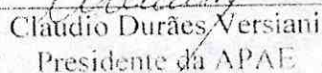 Cláudio Durães Versiani
Presidente da APAE